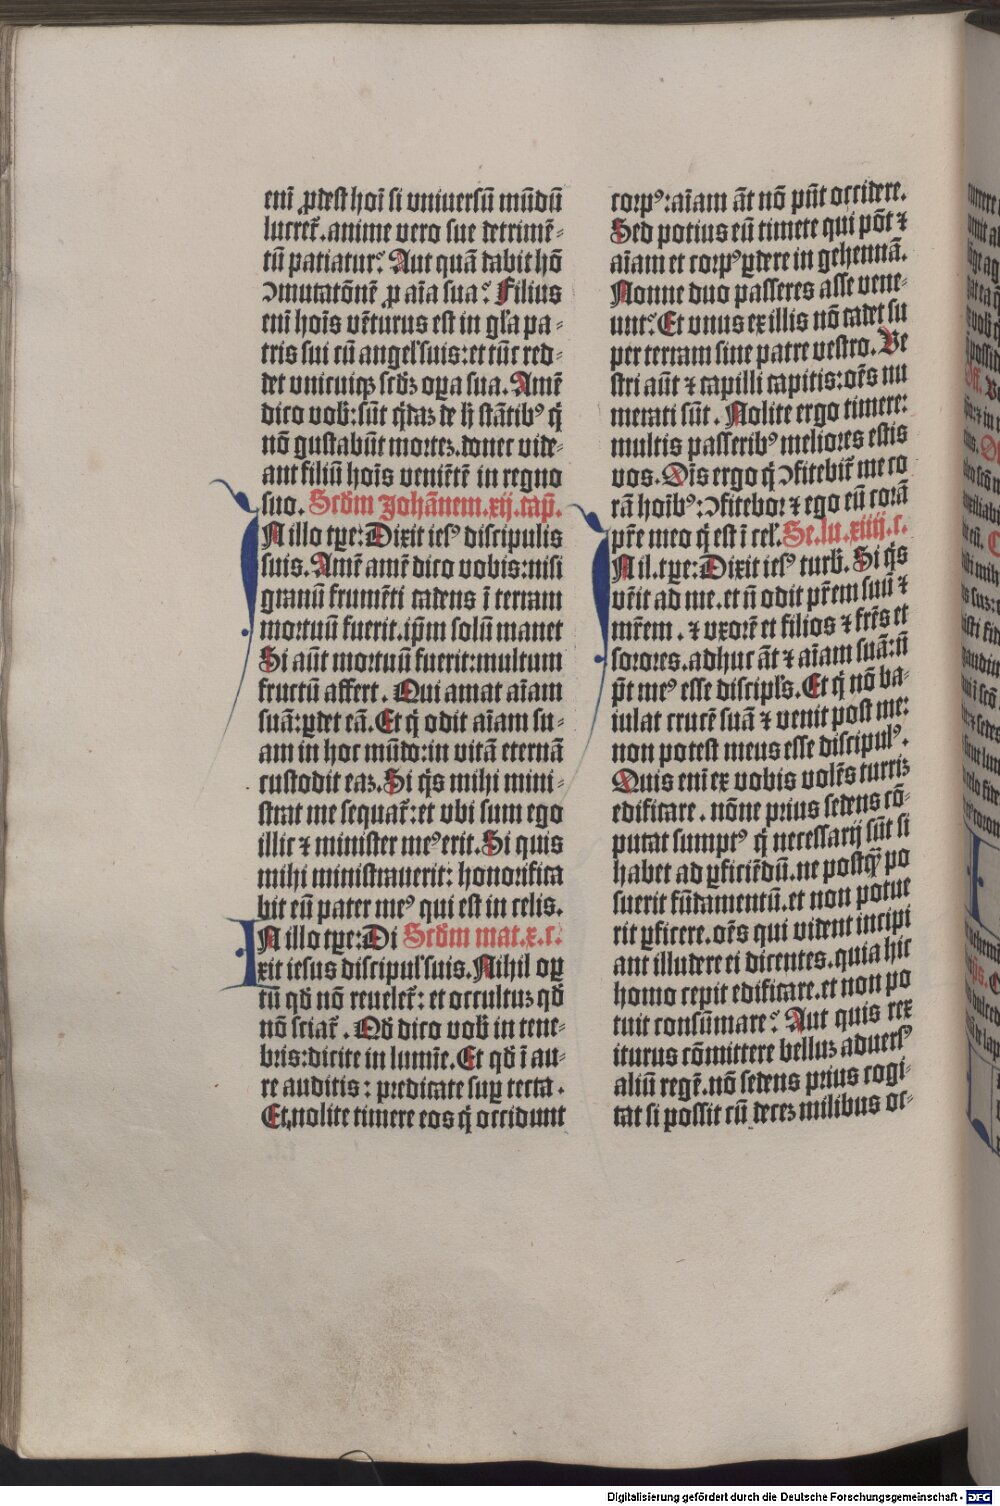 enī ꝓdest hoī si vniuersū mūdū
lucret᷑.anime vero sue detrimē-
tū patiatur? Aut quā dabit hō
ↄmutatōnē ꝓ aīa sua? Filius
enī hoīs vēturus est in gl'a pa-
tris sui cū angel' suis:et tūc red-
det vnicuiqꝫ scd'ꝫ oꝑa sua. Amē
dico vob̄:sūt q̄daꝫ de h̄ stātibꝰ q̄
nō gustabūt morteꝫ.donec vide-
ant filiū hoīs veniētē in regno
suo. Scdm Johānem.xij.cap̄.
IN illo tꝑe: Dixit iesꝰ discipulis
suis. Amē amē dico vobis:nisi
granū frumēti cadens ī terram
mortuū fuerit.ip̄m solū manet
Si aūt mortuū fuerit:multum
fructū affert. Qui amat aīam
suā:ꝑdet eā. Et q̄ odit aīam su-
am in hoc mūdo:in vitā eternā
custodit eaꝫ. Si q̄s mihi mini-
strat me sequat᷑:et vbi sum ego
illic ⁊ minister meꝰ erit. Si quis
mihi ministrauerit: honorifica
bit eū pater meꝰ qui est in celis.
IN illo tꝑe: Di Scdm mat.x.c.
xit iesus discipul' suis. Nihil oꝑ
tū qd̄ nō reuelet᷑: et occultuꝫ qd̄
nō sciat᷑. Qd̄ dico vob̄ in tene-
bris:dicite in lumīe. Et qd̄ ī au-
re auditis: predicate suꝑ tecta.
Et nolite timere eos q̄ occidunt
corpꝰ:aīam āt nō pn̄t occidere.
Sed potius eū timete qui pōt ⁊
aīam et corpꝰ ꝑdere in gehennā.
Nonne duo passeres asse vene-
unt? Et vnus ex illis nō cadet su
per terram sine patre vestro. Ve
stri aūt ⁊ capilli capitis:oēs nu
merati sūt. Nolite ergo timere:
multis passeribꝰ meliores estis
vos. Oīs ergo q̄ ↄfitebit᷑ me co
rā hoībꝰ:ↄfitebor ⁊ ego eū corā
pr̄e meo q̄ est ī cel'. Se.lu.xiiij.c.
IN il.tꝑe: Dixit iesꝰ turb̄. Si q̄s
vēit ad me.et n̄ odit pr̄em suū ⁊
mr̄em.⁊ vxorē et filios ⁊ fr̄es et
sorores.adhuc āt ⁊ aīam suā:n̄
pt̄ meꝰ esse discipl's. Et q̄ nō ba-
iulat crucē suā ⁊ venit post me:
non potest meus esse discipulꝰ.
Quis enī ex vobis volēs turriꝫ
edificare. nōne prius sedens cō-
putat sumptꝰ q̄ necessarij sūt si
habet ad ꝑficiēdū.ne postqꝫ po
suerit fūdamentū.et non potue
rit ꝑficere.oēs qui vident incipi
ant illudere ei dicentes.quia hic
homo cepit edificare.et non po
tuit consūmare? Aut quis rex
iturus cōmittere belluꝫ aduersꝰ
aliū regē.nō sedens prius cogi-
tat si possit cū deceꝫ milibus oc-
Digitalisierung gefördert durch die Deutsche Forschungsgemeinschaft - DFG